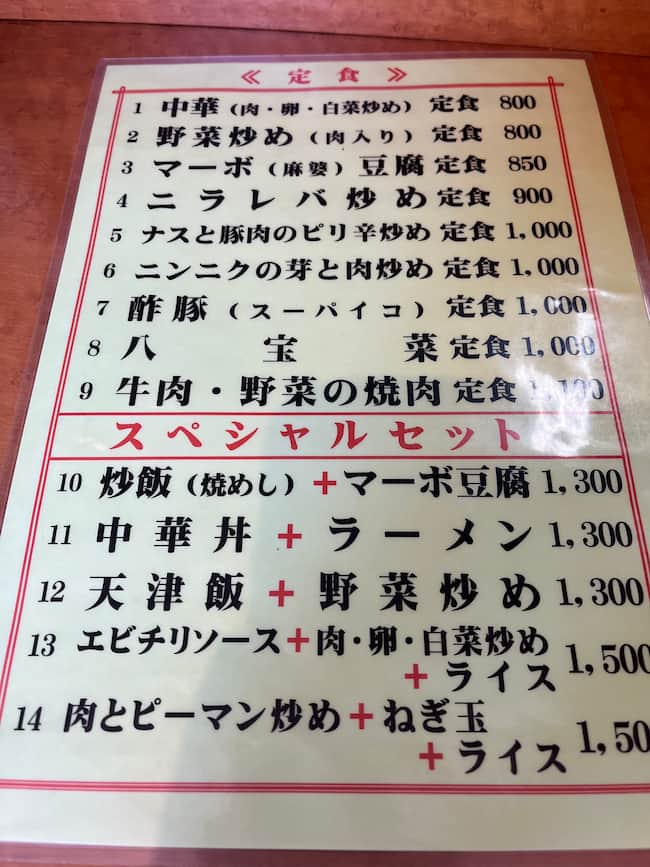 《 定食 》
1 中華（肉・卵・白菜炒め）定食 800
2 野菜炒め（肉入り）定食 800
3 マーボ（麻婆）豆腐定食 850
4 ニラレバ炒め定食 900
5 ナスと豚肉のピリ辛炒め定食 1,000
6 ニンニクの芽と肉炒め定食 1,000
7 酢豚（スーパイコ）定食 1,000
8 八宝菜定食 1,000
9 牛肉・野菜の焼肉定食 1,100
スペシャルセット
10 炒飯（焼めし）+マーボ豆腐 1,300
11 中華丼+ラーメン 1,300
12 天津飯+野菜炒め 1,300
13 エビチリソース+肉・卵・白菜炒め
+ライス 1,500
14 肉とピーマン炒め+ねぎ玉
+ライス 1,50